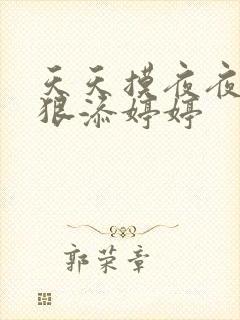 天天摸夜夜
狠添婷婷
郭荣章